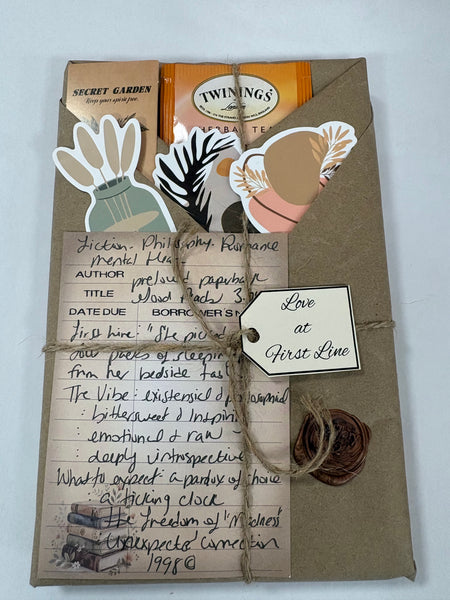 SECRET GARDEN
Keep your spirit free.
TWININGS
London
HERBAL TEA
Fiction - Philosophy Romance
mental Hea
AUTHOR preloved paperback
TITLE Good Reads 3.
DATE DUE BORROWER'S N
First line: "She picked
four packs of sleeping
from her bedside tab
The Vibe: existensial d philosophical
: bittersweet & Inspiri
: emotional & raw
: deeply introspective
What to expect: a paradox of choice
: a ticking clock
: the freedom of "Madness"
: Unexpected connection
1998©
Love
at
First Line